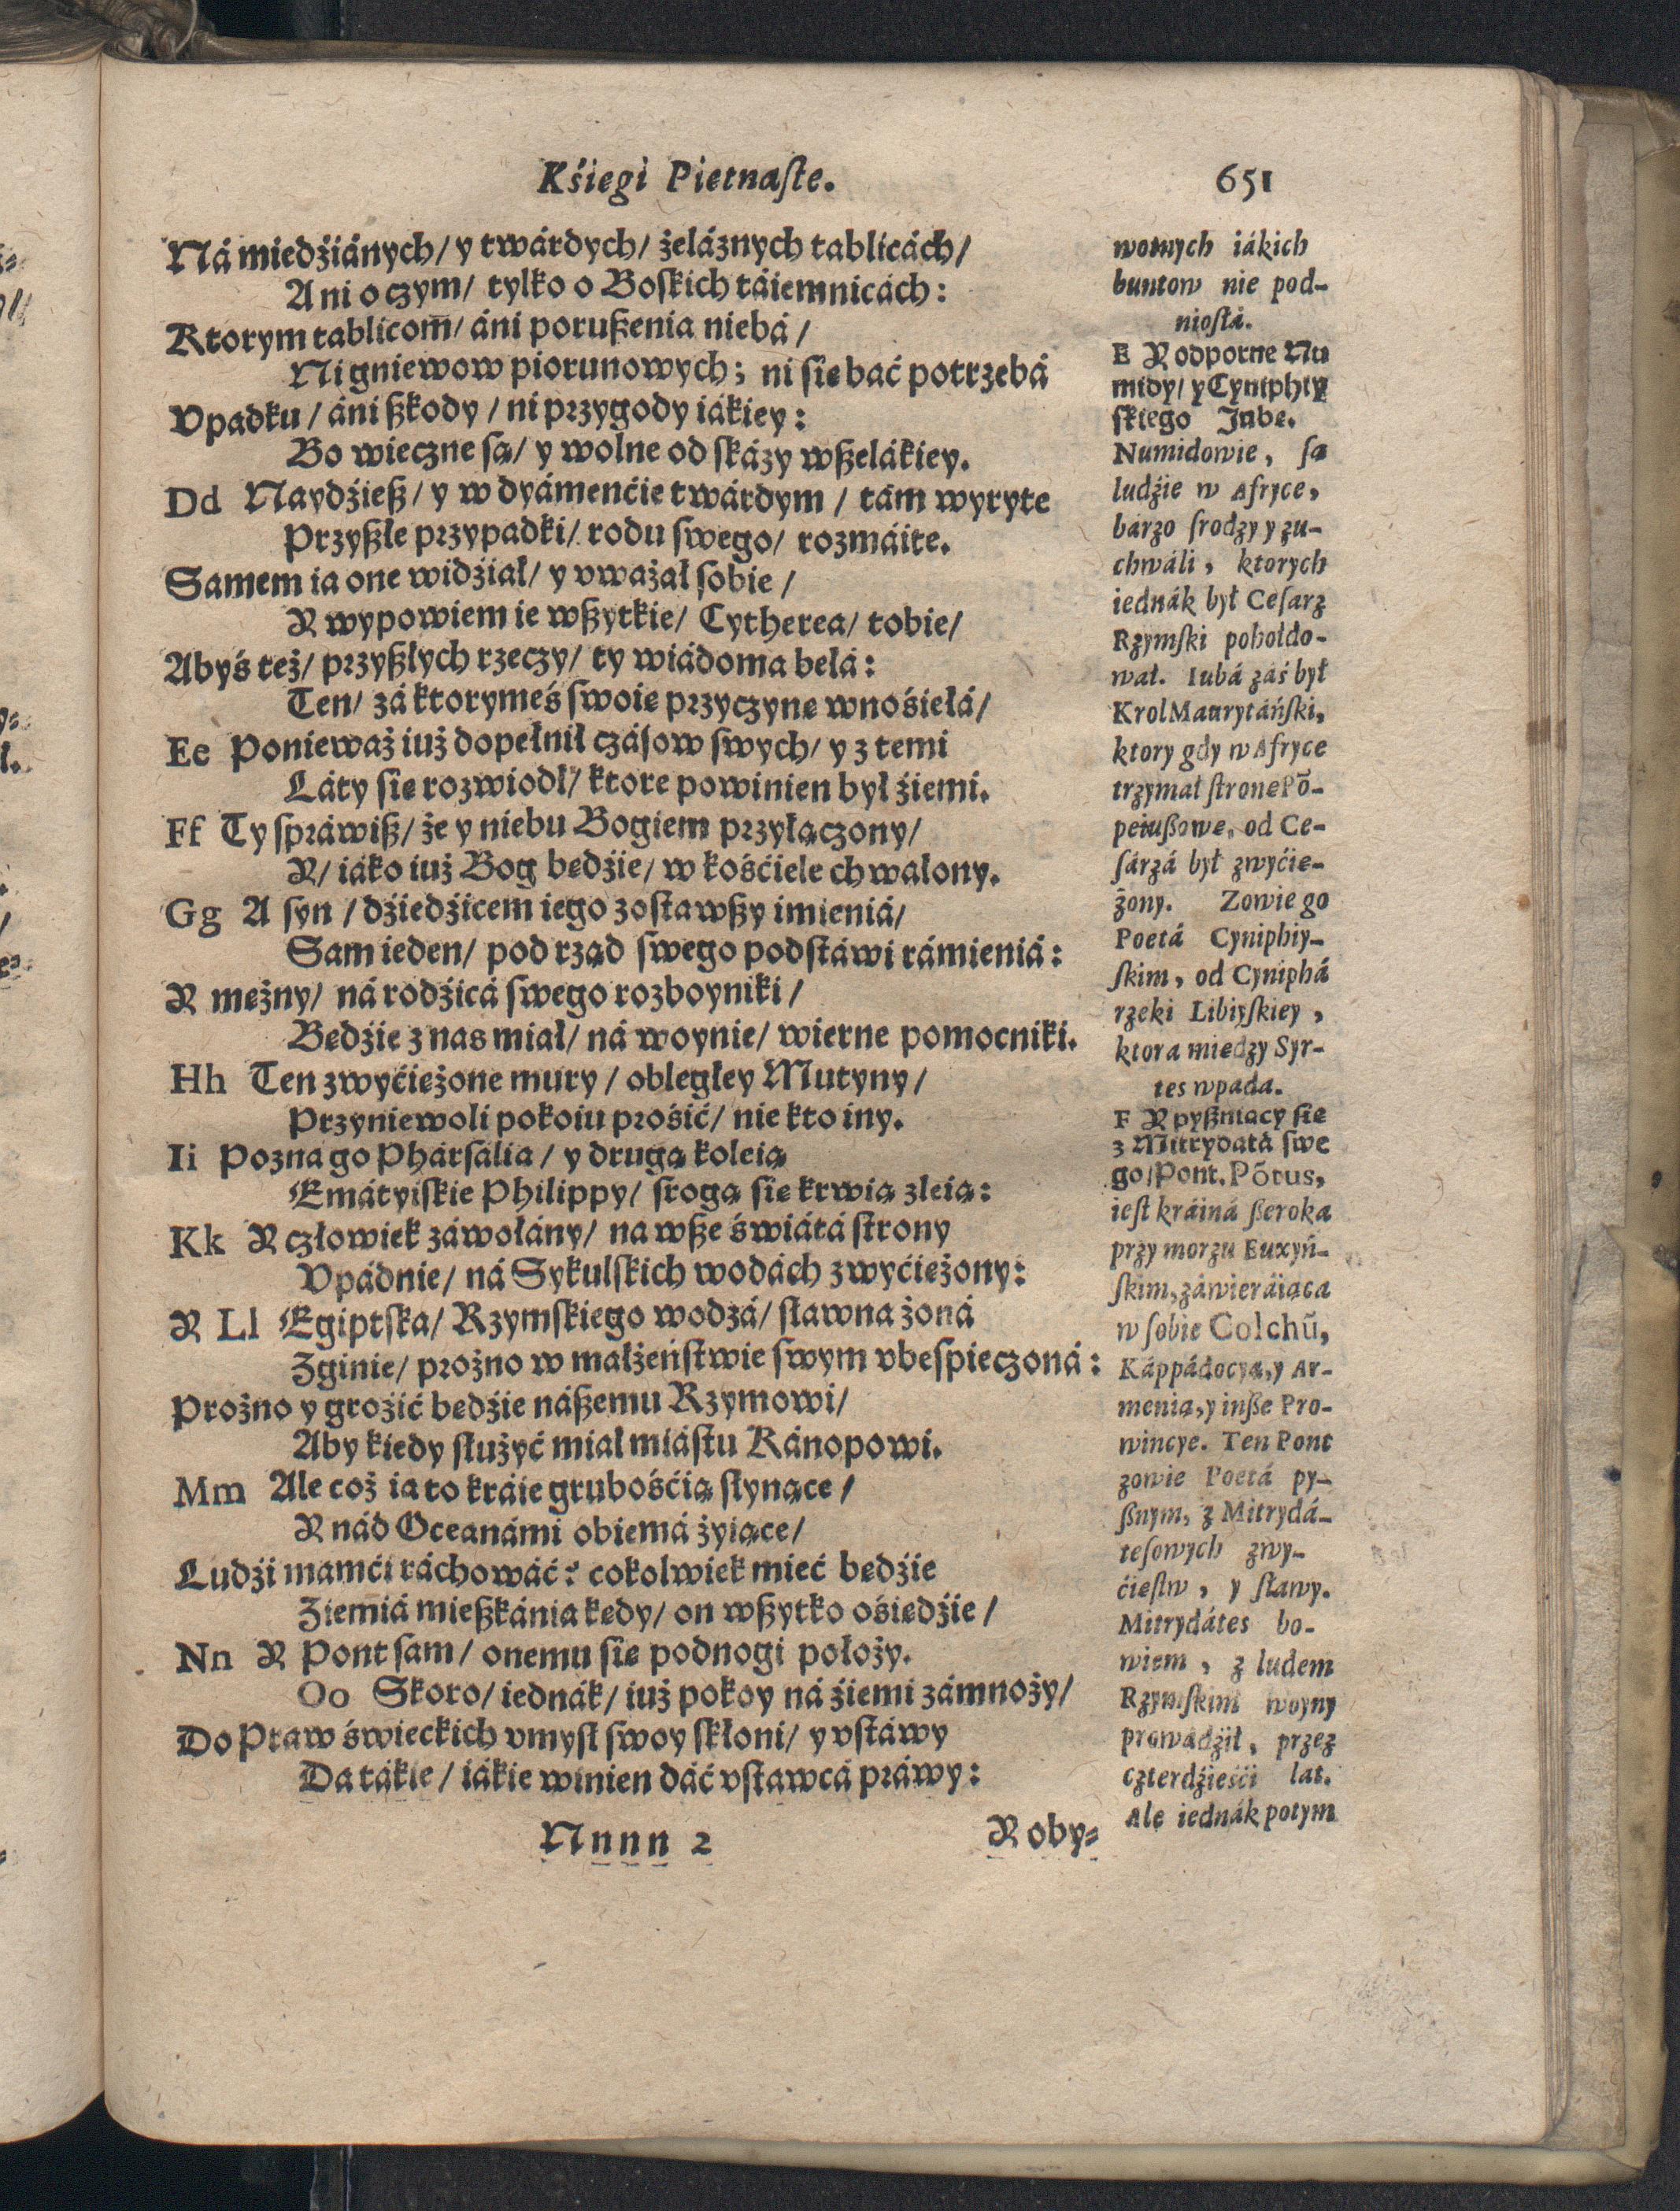 Kśiegi Pietnaſte.
651
Ná miedźiánych/ y twárdych/ żeláznych tablicách/
Ani o czym/ tylko o Boſkich táiemnicách:
Ktorym tablicom̄/ áni porußenia niebá/
Ni gniewow piorunowych; ni ſie bać potrzebá
Vpadku/ áni ßkody/ ni przygody iákiey:
Bo wieczne ſą/ y wolne od ſkázy wßelákiey.
Dd Naydźieß/ y w dyámenćie twárdym/ tám wyryte
Przyßłe przypadki/ rodu ſwego/ rozmáite.
Samem ia one widźiał/ y vważał ſobie/
Y wypowiem ie wßytkie/ Cytherea/ tobie/
Abyś też/ przyßłych rzeczy/ ty wiádoma belá:
Ten/ zá ktorymeś ſwoie przyczyne wnośiełá/
Ee Ponieważ iuż dopełnił czáſow ſwych/ y z temi
Láty ſie rozwiodł/ ktore powinien był źiemi.
Ff Ty ſpráwiß/ że y niebu Bogiem przyłączony/
Y/ iáko iuż Bog bedźie/ w kośćiele chwalony.
Gg A ſyn/ dźiedźicem iego zoſtawßy imieniá/
Sam ieden/ pod rząd ſwego podſtáwi rámieniá:
Y meżny/ ná rodźicá ſwego rozboyniki/
Bedźie z nas miał/ ná woynie/ wierne pomocniki.
Hh Ten zwyćieżone mury/ obległey Mutyny/
Przyniewoli pokoiu prośić/ nie kto iny.
Ii Pozna go Phárſália/ y drugą koleią
Emátyiſkie Philippy/ ſrogą ſie krwią zleią:
Kk Y człowiek záwołány/ na wße świátá ſtrony
Vpádnie/ ná Sykulſkich wodách zwyćieżony:
Y Ll Egiptſka/ Rzymſkiego wodzá/ ſławna żoná
Zginie/ prożno w małżeńſtwie ſwym vbeſpieczoná:
Prożno y groźić bedźie náßemu Rzymowi/
Aby kiedy ſłużyć miał miáſtu Kánopowi.
Mm Ale coż ia to kráie grubośćią ſłynące/
Y nád Oceanámi obiemá żyiące/
Ludźi mamći ráchowáć? cokolwiek mieć bedźie
Ziemiá mießkánia kedy/ on wßytko ośiedźie/
Nn Y Pont ſam/ onemu ſie podnogi położy.
Oo Skoro/ iednák/ iuż pokoy ná źiemi zámnoży/
Do Praw świeckich vmyſł ſwoy ſkłoni/ y vſtáwy
Da tákie/ iákie winien dáć vſtawcá práwy:
Nnnn 2
Y oby⸗
wotnych iákich
buntow nie pod-
nioſłá.
E Y odporne Nu
midy/ y Cyniphiy
ſkiego Jube.
Numidowie, ſa
ludźie w Afryce,
bárzo ſrodzy y zu-
chwáli, ktorych
iednák był Ceſarz
Rzymſki pohołdo-
wał. Iubá záś był
Krol Maurytáńſki,
ktory gdy w Afryce
trzymał ſtrone Põ-
peiußowe, od Ce-
ſárzá był zwyćie-
żony. Zowie go
Poetá Cyniphiy-
ſkim, od Cyniphá
rzeki Libiyſkiey,
ktora miedzy Syr-
tes wpada.
F Y pyßniący ſie
z Mitrydatá ſwe
go/ Pont. Põtus,
ieſt kráiná ßeroka
przy morzu Euxyń-
ſkim, záwieráiąca
w ſobie Colchũ,
Káppádocyą, y Ar-
menią, y inße Pro-
wincye. Ten Pont
zowie Poetá py-
ßnym, z Mitrydá-
teſowych zwy-
ćieſtw, y ſławy.
Mitrydátes bo-
wiem, z ludem
Rzymſkim woyny
prowádźił, przez
czterdźieśći lat.
Ale iednák potym